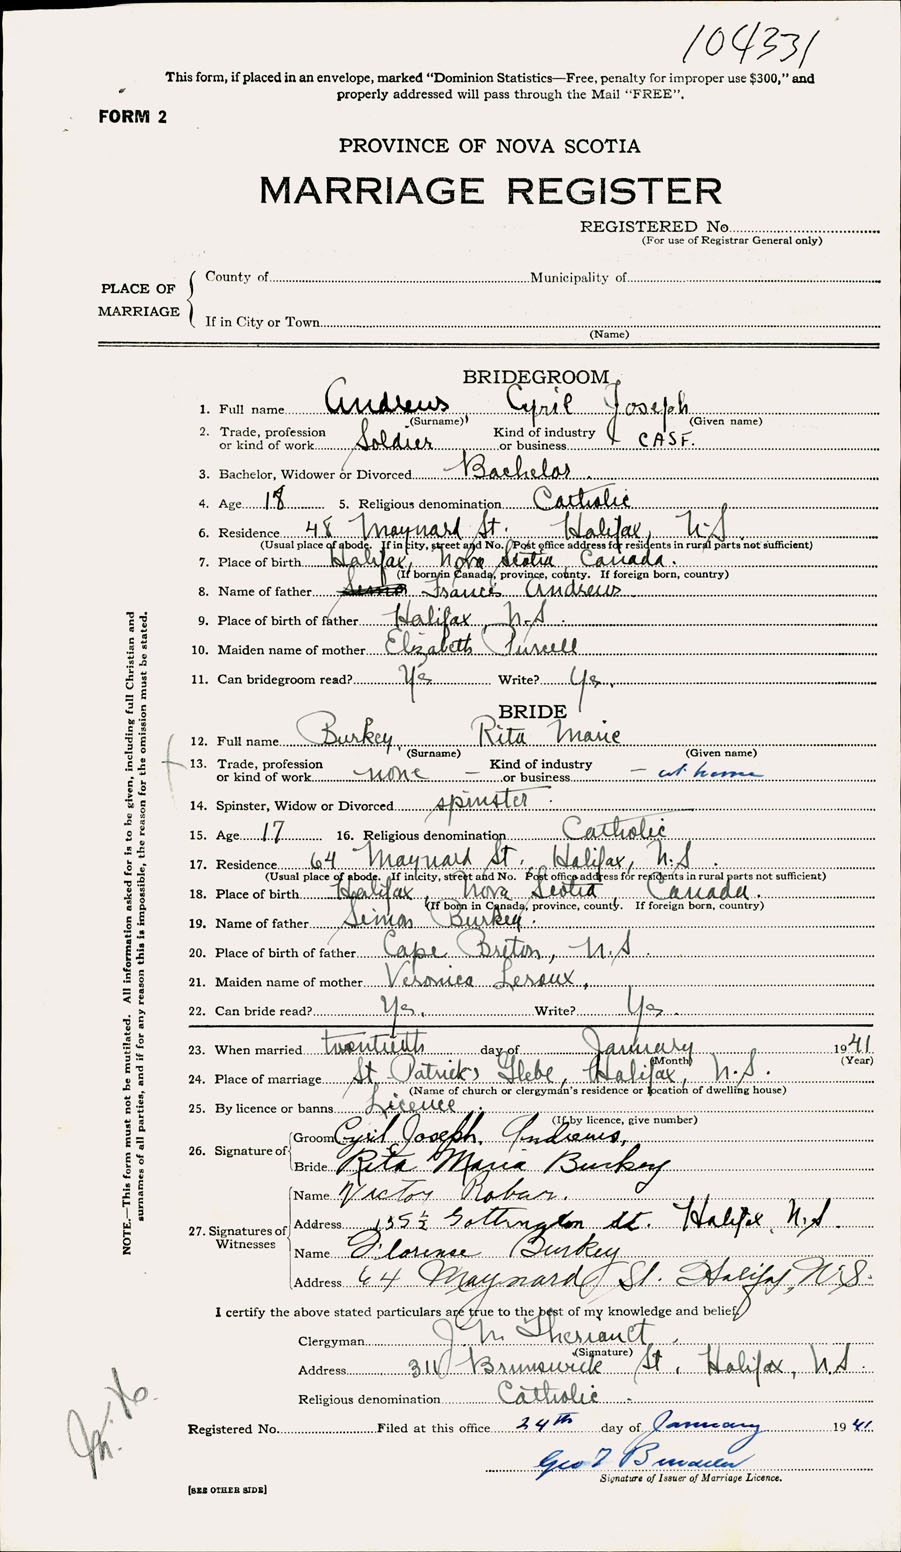 104331
This form, if placed in an envelope, marked "Dominion Statistics—Free, penalty for improper use $300," and
properly addressed will pass through the Mail "FREE".
FORM 2
PROVINCE OF NOVA SCOTIA
MARRIAGE REGISTER
REGISTERED No.
(For use of Registrar General only)
PLACE OF MARRIAGE
County of Municipality of
If in City or Town
(Name)
BRIDEGROOM
1. Full name Andrews Cyril Joseph
(Surname) (Given name)
2. Trade, profession or kind of work Soldier Kind of industry or business CASF.
3. Bachelor, Widower or Divorced Bachelor.
4. Age 18 5. Religious denomination Catholic
6. Residence 48 Maynard St. Halifax, N.S.
(Usual place of abode. If in city, street and No. Post office address for residents in rural parts not sufficient)
7. Place of birth Halifax, Nova Scotia, Canada.
(If born in Canada, province, county. If foreign born, country)
8. Name of father Francis Andrews
9. Place of birth of father Halifax N.S.
10. Maiden name of mother Elizabeth Purcell
11. Can bridegroom read? Yes Write? Yes.
BRIDE
12. Full name Burkey, Rita Marie
(Surname) (Given name)
13. Trade, profession or kind of work none — Kind of industry or business — at home
14. Spinster, Widow or Divorced spinster.
15. Age 17 16. Religious denomination Catholic
17. Residence 64 Maynard St. Halifax, N.S.
(Usual place of abode. If in city, street and No. Post office address for residents in rural parts not sufficient)
18. Place of birth Halifax, Nova Scotia, Canada.
(If born in Canada, province, county. If foreign born, country)
19. Name of father Simon Burkey.
20. Place of birth of father Cape Breton, N.S.
21. Maiden name of mother Veronica Leroux,
22. Can bride read? Yes. Write? Yes.
23. When married twentieth day of January 1941
(Month) (Year)
24. Place of marriage St. Patrick's Glebe, Halifax, N.S.
(Name of church or clergyman's residence or location of dwelling house)
25. By licence or banns Licence.
(If by licence, give number)
26. Signature of Groom Cyril Joseph. Andrews,
Bride Rita Maria Burkey
27. Signatures of Witnesses
Name Victor Robar.
Address 135½ Gottingen St. Halifax, N.S.
Name Florense Burkey
Address 64 Maynard St. Halifax, N.S.
I certify the above stated particulars are true to the best of my knowledge and belief.
Clergyman J. M. Theriault.
(Signature)
Address 311 Brunswick St. Halifax, N.S.
Religious denomination Catholic.
Registered No. Filed at this office 24th day of January 1941
Geo
Signature of Issuer of Marriage Licence.
[SEE OTHER SIDE]
NOTE.—This form must not be mutilated. All information asked for is to be given, including full Christian and
surnames of all parties, and if for any reason this is impossible, the reason for the omission must be stated.